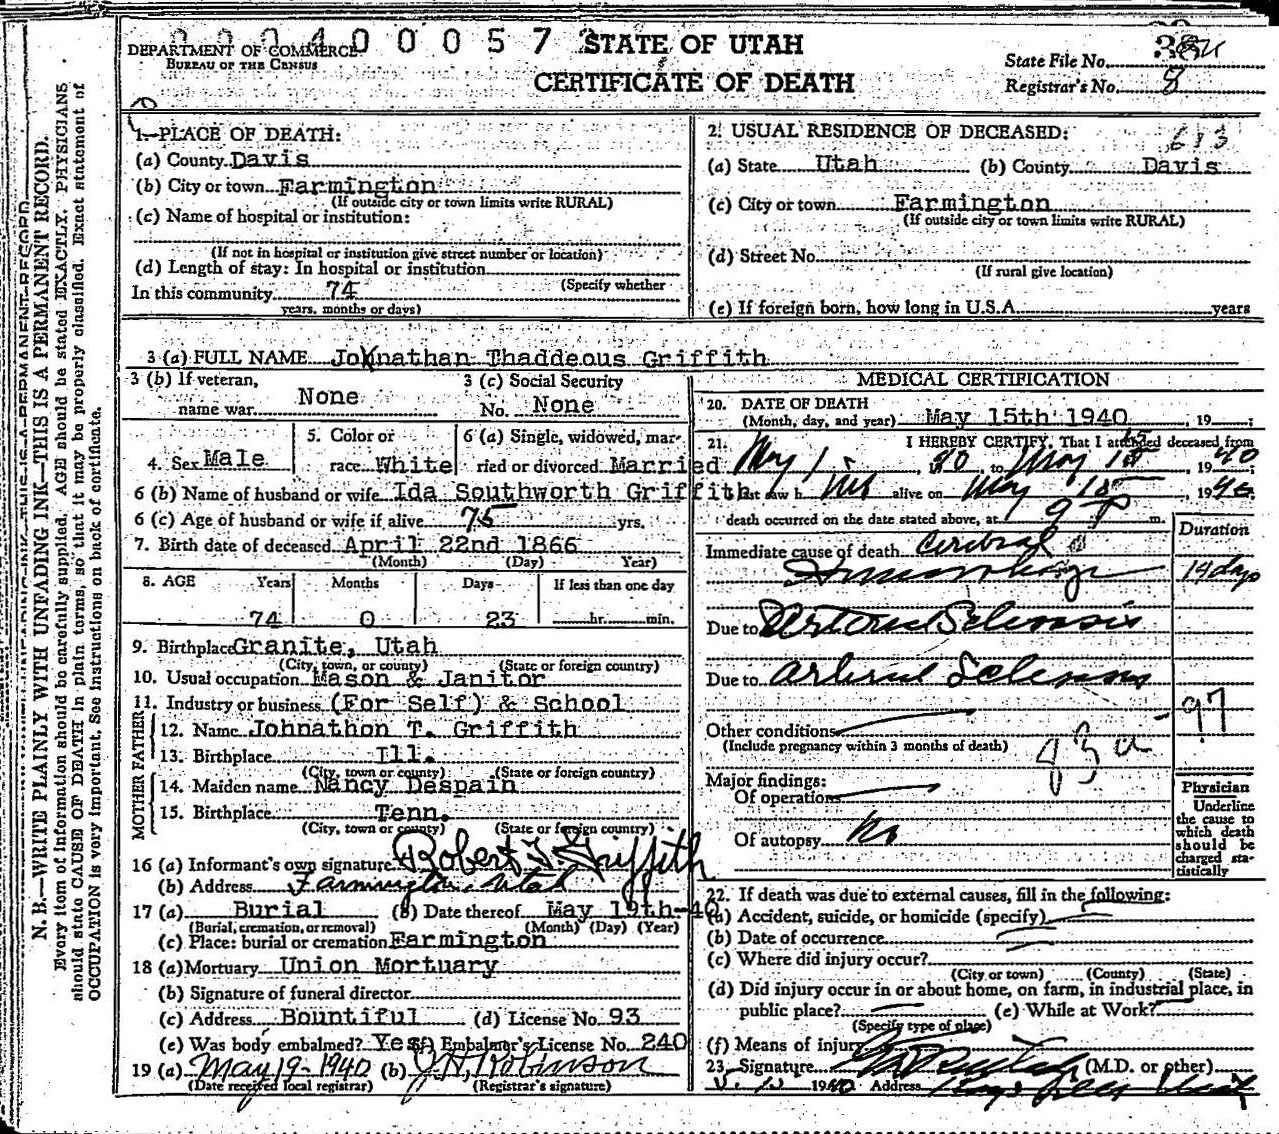 00400057
DEPARTMENT OF COMMERCE
BUREAU OF THE CENSUS
STATE OF UTAH
CERTIFICATE OF DEATH
State File No.
Registrar's No. 8
N. B.—WRITE PLAINLY WITH UNFADING INK—THIS IS A PERMANENT RECORD.
Every item of information should be carefully supplied. AGE should be stated EXACTLY. PHYSICIANS
should state CAUSE OF DEATH in plain terms, so that it may be properly classified. Exact statement of
OCCUPATION is very important. See instructions on back of certificate.
1. PLACE OF DEATH:
(a) County Davis
(b) City or town Farmington
(If outside city or town limits write RURAL)
(c) Name of hospital or institution:
(If not in hospital or institution give street number or location)
(d) Length of stay: In hospital or institution
(Specify whether
In this community 74
years, months or days)
2. USUAL RESIDENCE OF DECEASED:
613
(a) State Utah (b) County Davis
(c) City or town Farmington
(If outside city or town limits write RURAL)
(d) Street No.
(If rural give location)
(e) If foreign born, how long in U.S.A. years
3 (a) FULL NAME Johnathan Thaddeous Griffith
3 (b) If veteran,
name war None
3 (c) Social Security
No. None
4. Sex Male
5. Color or
race White
6 (a) Single, widowed, mar-
ried or divorced Married
6 (b) Name of husband or wife Ida Southworth Griffith
6 (c) Age of husband or wife if alive 75 yrs.
7. Birth date of deceased April 22nd 1866
(Month) (Day) Year)
8. AGE Years Months Days If less than one day
74 0 23 hr. min.
9. Birthplace Granite, Utah
(City, town, or county) (State or foreign country)
10. Usual occupation Mason & Janitor
11. Industry or business (For Self) & School
FATHER
12. Name Johnathon T. Griffith
13. Birthplace Ill.
(City, town or county) (State or foreign country)
MOTHER
14. Maiden name Nancy Despain
15. Birthplace Tenn.
(City, town or county) (State or foreign country)
16 (a) Informant's own signature Robert T. Griffith
(b) Address Farmington, Utah
17 (a) Burial (b) Date thereof May 19th-40
(Burial, cremation, or removal) (Month) (Day) (Year)
(c) Place: burial or cremation Farmington
18 (a) Mortuary Union Mortuary
(b) Signature of funeral director
(c) Address Bountiful (d) License No. 93
(e) Was body embalmed? Yes (f) Embalmer's License No. 240
19 (a) May 19-1940 (b) J.H. Robinson
(Date received local registrar) (Registrar's signature)
MEDICAL CERTIFICATION
20. DATE OF DEATH
(Month, day, and year) May 15th 1940, 19 ;
21. I HEREBY CERTIFY, That I attended deceased from
May 1, 40, to May 15, 1940
I last saw him alive on May 15, 1940,
death occurred on the date stated above, at 9 P m.
Duration
Immediate cause of death Cerebral
Hemorrhage 14 days
Due to Arterio Sclerosis
Due to Arterial Sclerosis
97
Other conditions
(Include pregnancy within 3 months of death)
83a
Major findings:
Of operations
Of autopsy No
Physician
Underline
the cause to
which death
should be
charged sta-
tistically
22. If death was due to external causes, fill in the following:
(a) Accident, suicide, or homicide (specify)
(b) Date of occurrence
(c) Where did injury occur?
(City or town) (County) (State)
(d) Did injury occur in or about home, on farm, in industrial place, in
public place? (e) While at Work?
(Specify type of place)
(f) Means of injury
23. Signature (M.D. or other)
1940 Address Utah